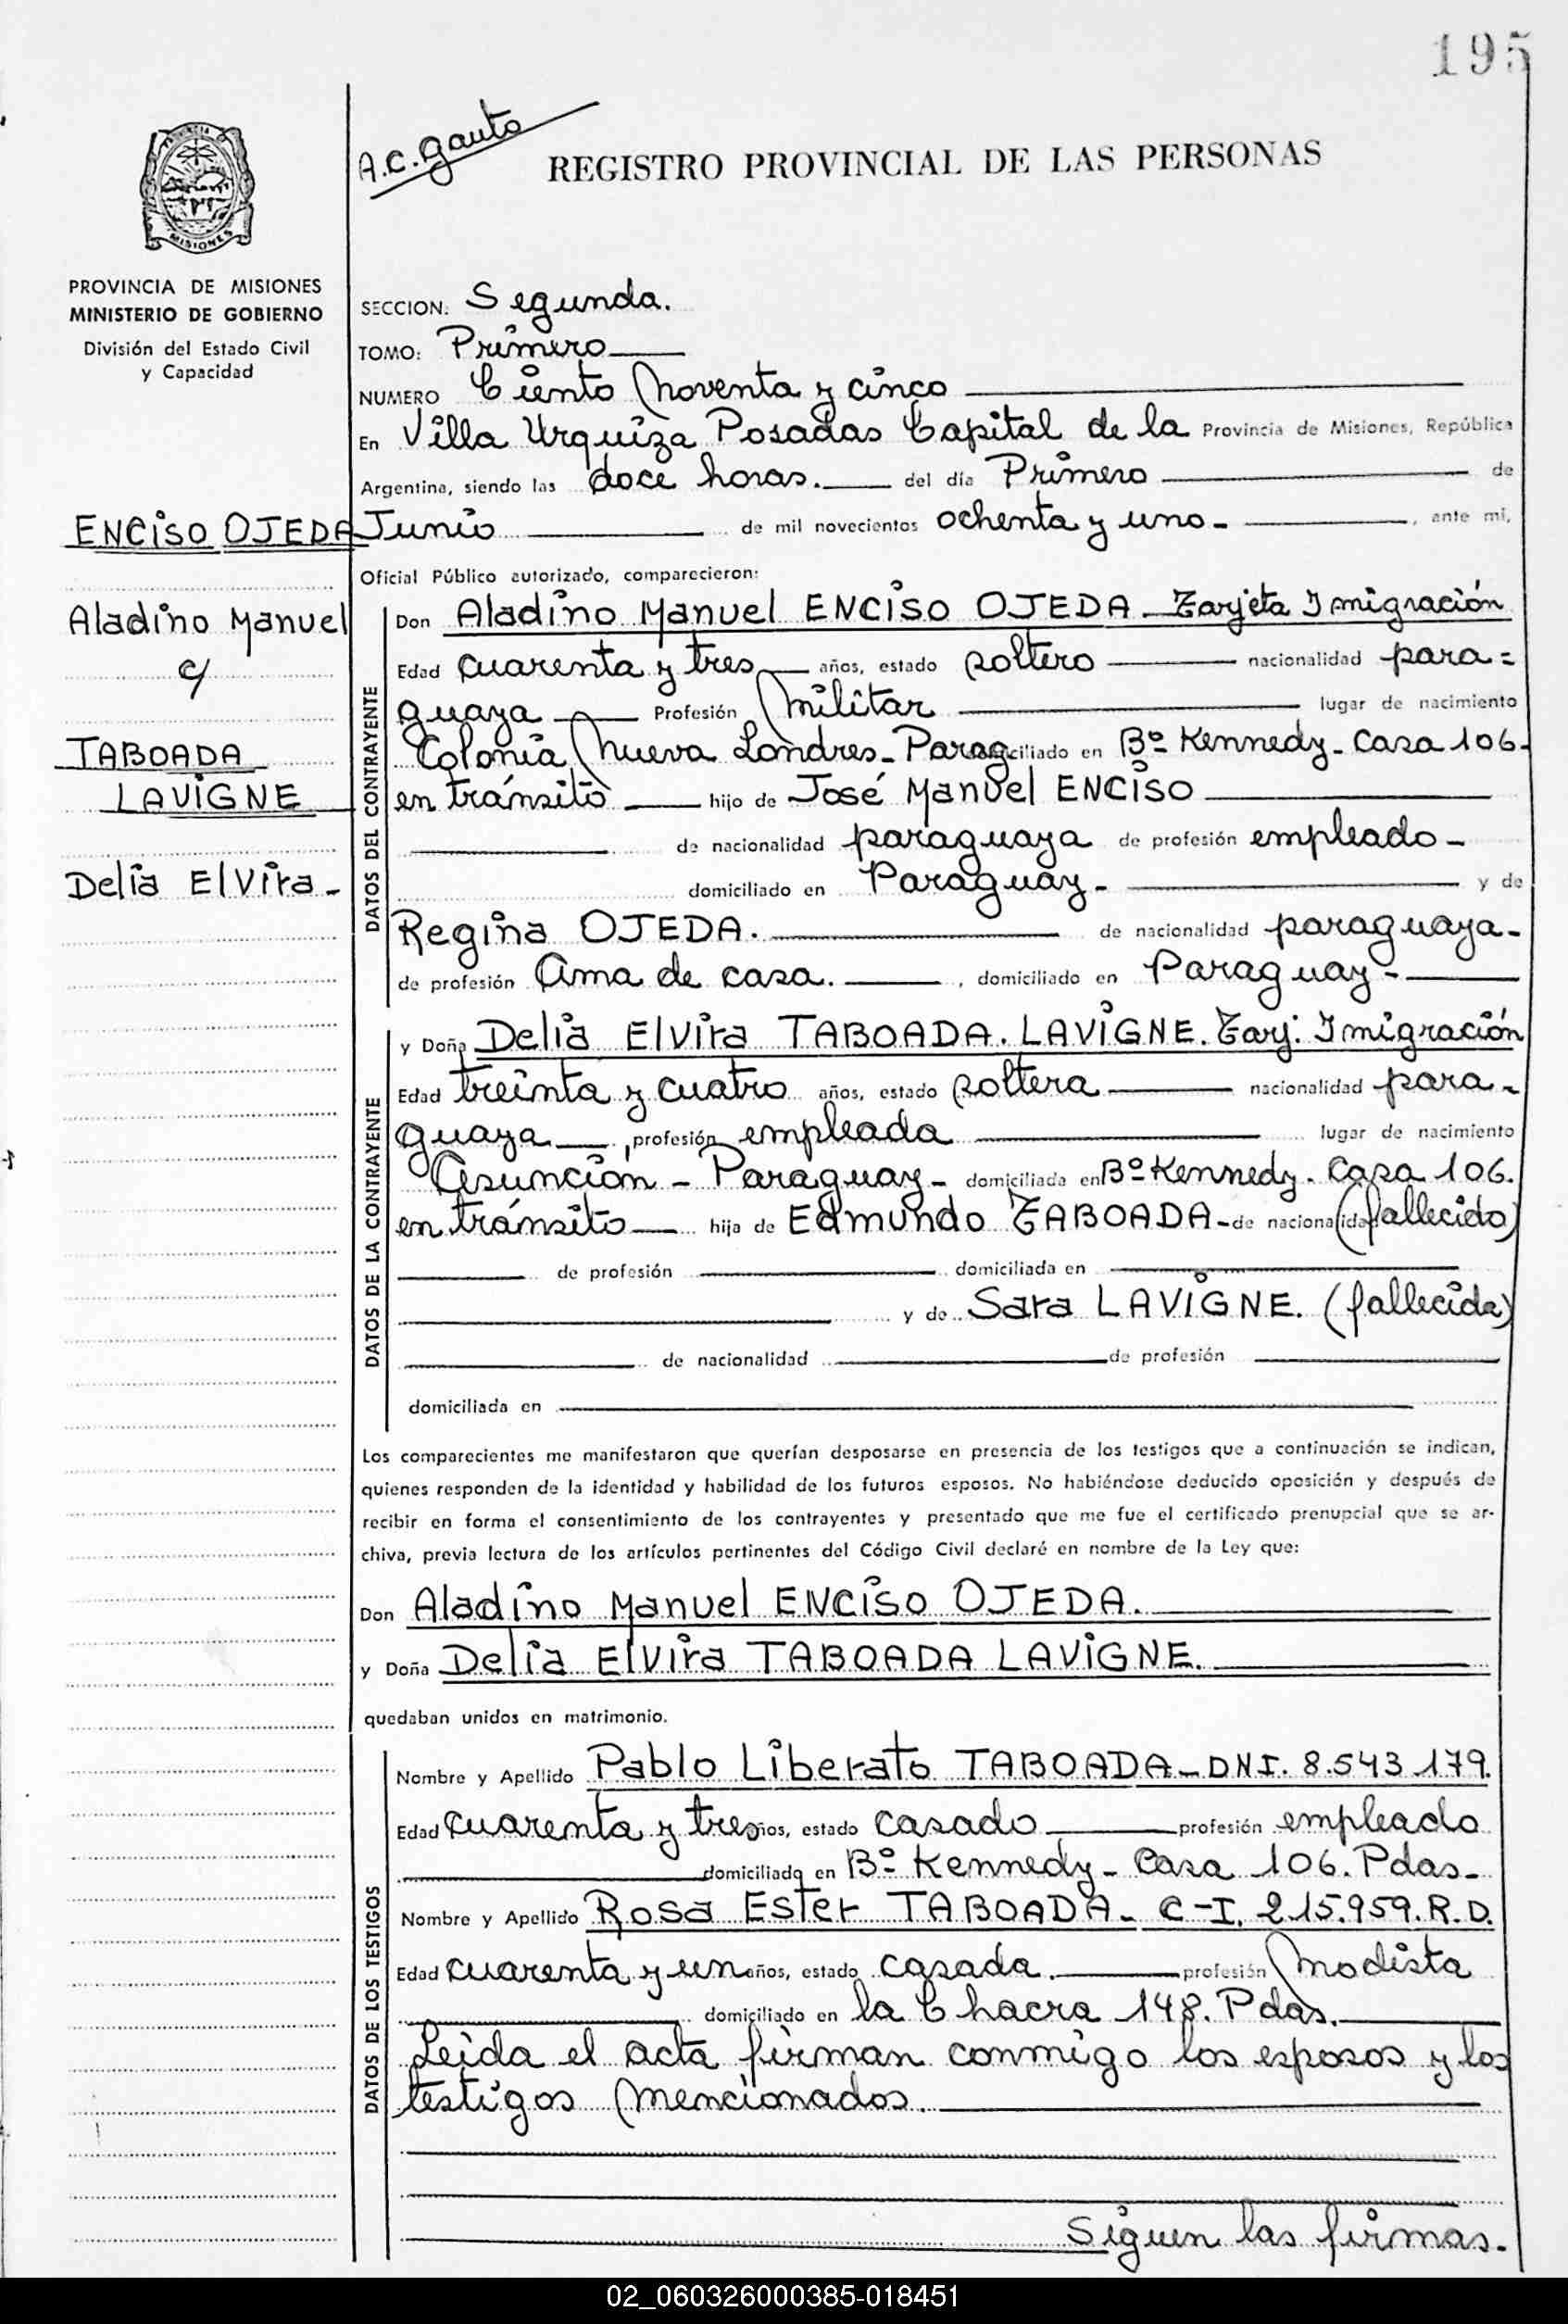 195
A.C. Gauto
REGISTRO PROVINCIAL DE LAS PERSONAS
PROVINCIA
MISIONES
PROVINCIA DE MISIONES
MINISTERIO DE GOBIERNO
División del Estado Civil
y Capacidad
SECCION: Segunda.
TOMO: Primero
NUMERO Ciento noventa y cinco
En Villa Urquiza Posadas Capital de la Provincia de Misiones, República
Argentina, siendo las doce horas. del día Primero de
Junio de mil novecientos ochenta y uno- , ante mi,
Oficial Público autorizado, comparecieron:
ENCISO OJEDA
Aladino Manuel
c/
TABOADA
LAVIGNE
Delia Elvira-
DATOS DEL CONTRAYENTE
Don Aladino Manuel ENCISO OJEDA - Tarjeta Imigración
Edad cuarenta y tres años, estado soltero nacionalidad para=
guaya Profesión militar lugar de nacimiento
Colonia nueva Londres- Parag domiciliado en Bº Kennedy- casa 106-
en tránsito hijo de José Manuel ENCISO
de nacionalidad paraguaya de profesión empleado-
domiciliado en Paraguay- y de
Regina OJEDA. de nacionalidad paraguaya-
de profesión Ama de casa. , domiciliado en Paraguay-
DATOS DE LA CONTRAYENTE
y Doña Delia Elvira TABOADA. LAVIGNE. Tarj. Imigración
Edad treinta y cuatro años, estado soltera nacionalidad para-
guaya , profesión empleada lugar de nacimiento
Asunción - Paraguay- domiciliada en Bº Kennedy. Casa 106.
en tránsito hija de Edmundo TABOADA- de nacionalidad (fallecido)
de profesión domiciliada en
y de Sara LAVIGNE. (fallecida)
de nacionalidad de profesión
domiciliada en
Los comparecientes me manifestaron que querían desposarse en presencia de los testigos que a continuación se indican,
quienes responden de la identidad y habilidad de los futuros esposos. No habiéndose deducido oposición y después de
recibir en forma el consentimiento de los contrayentes y presentado que me fue el certificado prenupcial que se ar-
chiva, previa lectura de los artículos pertinentes del Código Civil declaré en nombre de la Ley que:
Don Aladino Manuel ENCISO OJEDA.
y Doña Delia Elvira TABOADA LAVIGNE.
quedaban unidos en matrimonio.
DATOS DE LOS TESTIGOS
Nombre y Apellido Pablo Liberato TABOADA- DNI. 8.543.179.
Edad cuarenta y tres años, estado casado profesión empleado
domiciliado en Bº Kennedy- Casa 106. Pdas-
Nombre y Apellido Rosa Ester TABOADA- C-I. 215.959. R.D.
Edad cuarenta y un años, estado casada. profesión modista
domiciliado en la Chacra 148. Pdas.
Leida el acta firman conmigo los esposos y los
testigos mencionados.
Siguen las firmas-
02_060326000385-018451